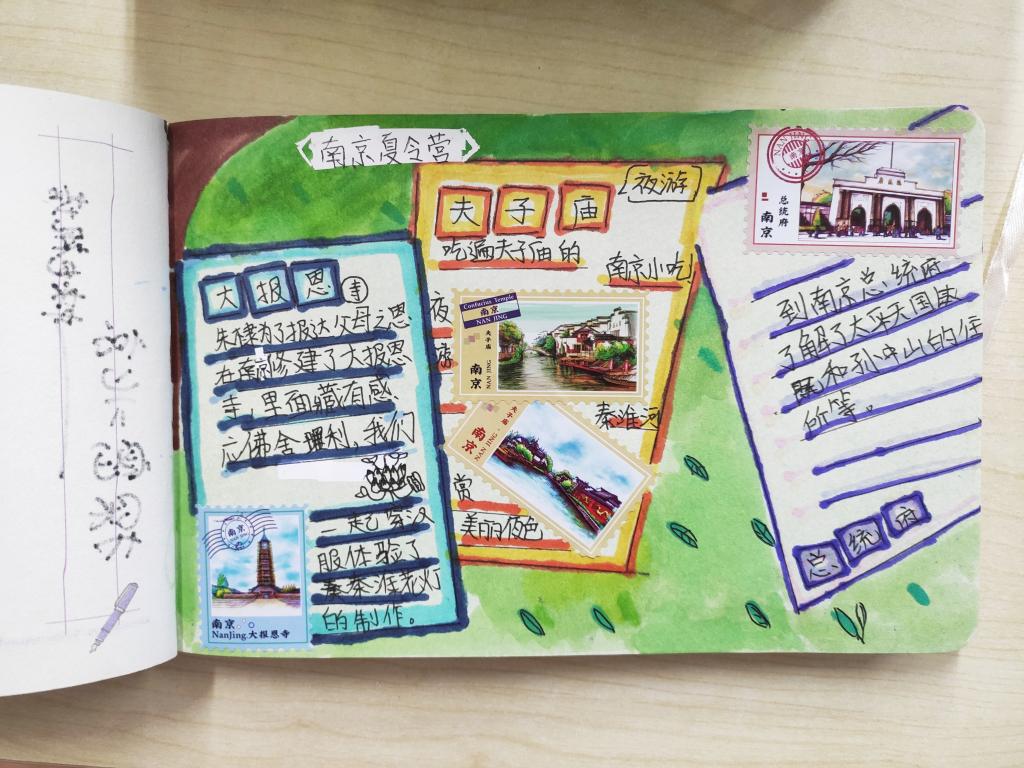 南京夏令营
大报恩寺
朱棣为了报达父母之恩
在南京修建了大报恩
寺,里面藏有感
应佛舍利,我们
一起穿汉
服体验了
秦淮花灯
的制作。
南京
NanJing.大报恩寺
夫子庙
夜游
吃遍夫子庙的
南京小吃
夜
Confucius Temple
南京
NAN JING
夫子庙
南京
NAN JING
秦淮河
夫子庙
南京
NAN JING
赏
美丽夜色
南京
总统府
南京
到南京总统府
了解了太平天国
和孙中山的
价等。
总统府